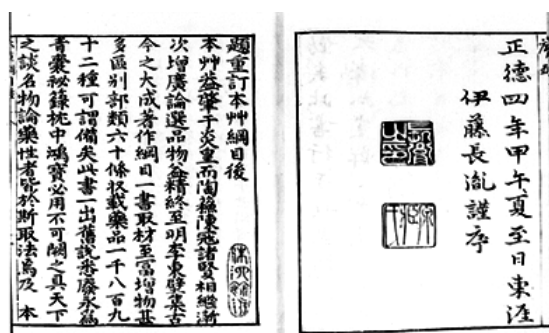 正德四年甲午夏至日東涯
伊藤長胤謹序
題重訂本艸綱目後
本艸益肇于炎皇而陶蘇陳寇諸賢相繼漸
次增廣論選品物益精終至明李東璧集古
今之大成著作綱目一書取材至富增物甚
多區別部類六十條收載藥品一千八百九
十二種可謂備矣此書一出舊說悉廢永為
青囊祕錄枕中鴻寶必用不可闕之具天下
之談名物論藥性者皆於斯取法焉及 本